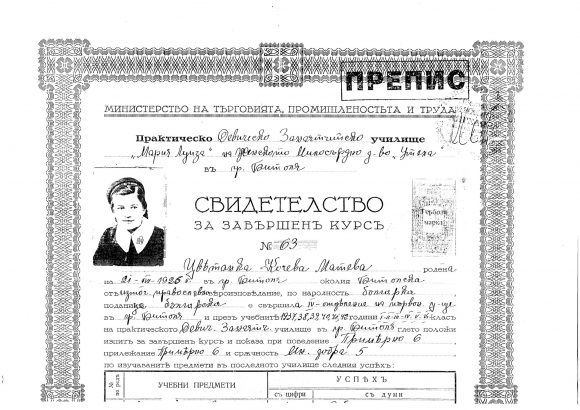 ПРЕПИС
МИНИСТЕРСТВО НА ТЪРГОВИЯТА, ПРОМИШЛЕНОСТЬТА И ТРУДА
Практическо Девическо Занаятчийско училище
„Мария Луиза" на Женското Милосърдно д-во, Утеха
въ гр. Битоля
СВИДЕТЕЛСТВО
ЗА ЗАВЪРШЕНЪ КУРСЪ
№ 63
Гербова
марка
Цвѣтанка Кочева Матева родена
на 21 1926 г. въ гр. Битоля околия Битолска
отъ източ. православно вѣроизповѣдание, по народность българка
поданица българска е свършила IV отдѣление на първон. у-ще
въ гр. Битоля и презъ учебнитѣ години класъ
на практическото Девич. Занаятч. училище въ гр. Битоля гдето положи
изпитъ за завършенъ курсъ и показа при поведение Примѣрно 6
прилежание Примѣрно 6 и сръчность Мн. добра 5
по изучаванитѣ предмети въ последното училище следния успѣхъ:
№ по редъ
УЧЕБНИ ПРЕДМЕТИ
УСПѢХЪ
съ цифри
съ думи